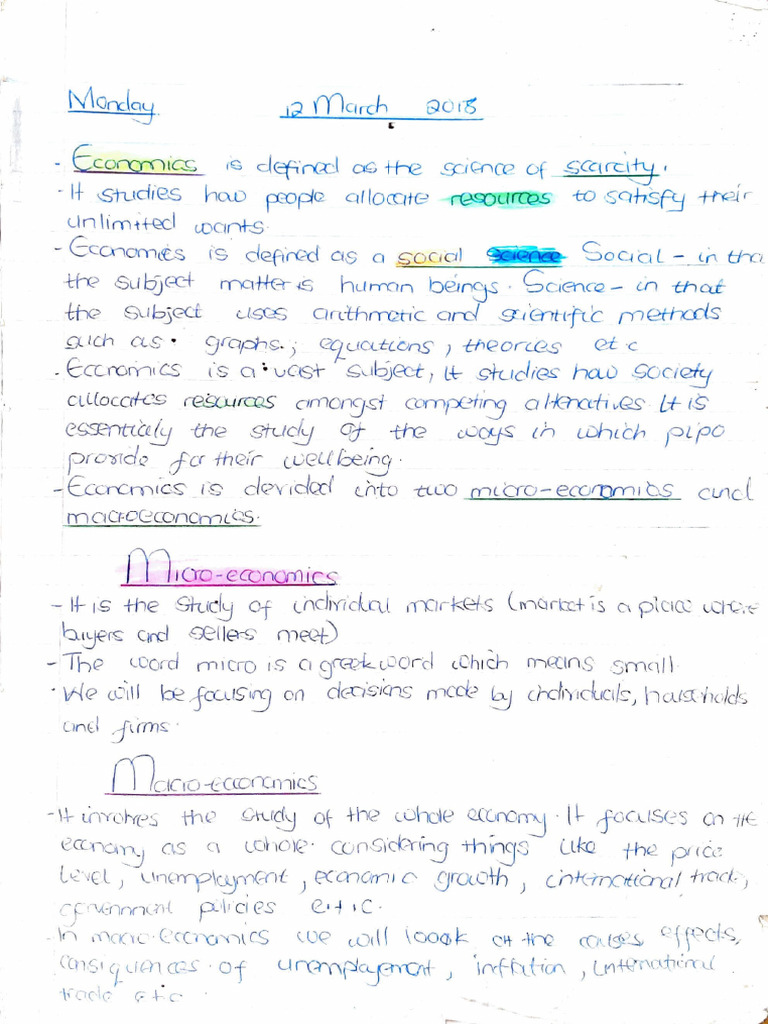 Monday 12 March 2018
- Economics is defined as the science of scarcity.
- It studies how people allocate resources to satisfy their
unlimited wants.
- Economics is defined as a social science Social - in tha
the subject matter is human beings. Science - in that
the subject uses arithmetic and scientific methods
such as graphs; equations, theories etc
. Economics is a vast subject, it studies how society
allocates resources amongst competing altenatives It is
essentialy the study of the ways in which pipo
provide for their wellbeing.
- Economics is devided into two micro-economics and
macroeconomics.
Micro-economics
- It is the study of individual markets (market is a place where
buyers and sellers meet)
- The word micro is a greek word which means small.
. We will be focusing on decisions made by individuals, households
and firms.
Macro-economics
- It involves the study of the whole economy. It focuses on the
economy as a whole. considering things like the price
level, unemployment, economic growth, international trade,
government policies e.t.c.
- In macro-economics we will loook at the causes effects,
consiquences of unemployement, inflation, international
trade etc.